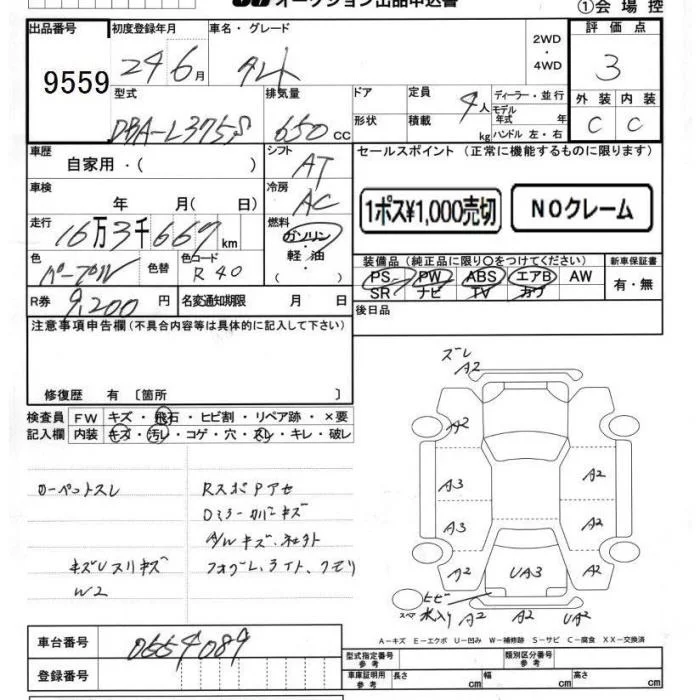 オークション出品申込書
①会場控
出品番号
9559
初度登録年月
24 6月
車名・グレード
タント
2WD
・
4WD
評価点
3
型式
DBA-L375S
排気量
650 cc
ドア
形状
定員
4人
積載
kg
ディーラー・並行
モデル年式 年
ハンドル 左・右
外装 内装
C C
車歴
自家用・( )
シフト
AT
セールスポイント (正常に機能するものに限ります)
車検
年 月( 日)
冷房
AC
1ポス¥1,000売切
NOクレーム
走行
16万3千667km
燃料
ガソリン
・
軽油
・
色
パープル
色替
色コード
R40
装備品(純正品に限り○をつけてください)
PS PW ABS エアB AW
SR ナビ TV カワ
新車保証書
有・無
R券
9,200円
名変通知期限 月 日
後日品
注意事項申告欄(不具合内容等は具体的に記入して下さい)
修復歴 有〔箇所 〕
検査員
記入欄
FW キズ・飛石・ヒビ割・リペア跡・×要
内装 キズ・汚レ・コゲ・穴・スレ・キレ・破レ
ズレ
A2
A2
A3
A3
A2
A2
A2
A2
UA3
ヒビ
水入り
スペア
A2
A2
UA2
Dミラーカバーキズ
A/Wキズ
W2
A-キズ E-エクボ U-凹み W-補修跡 S-サビ C-腐食 XX-交換済
車台番号
0664089
登録番号
型式指定番号
参考
類別区分番号
参考
車庫証明用
参考
長さ cm
幅 cm
高さ cm